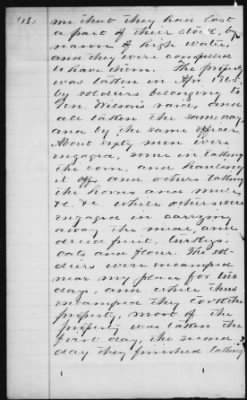 (15)
me that they had lost
a part of their store, by
reason of high water,
and they were compelled
to have them. The property
was taken in Apr. 1865
by soldiers belonging to
Gen. Wilson's raid, and
all taken the same day
and by the same officer.
About sixty men were
engaged, some in taking
the corn, and hauling
it off, and others taking
the horses and mules,
&c &c. while others were
engaged in carrying
away the meal, and
dried fruit, turkeys,
oats and flour. The sol-
diers were encamped
near my place for two
days, and while thus
encamped they took the
property, most of the
property was taken the
first day, the second
day they finished taking